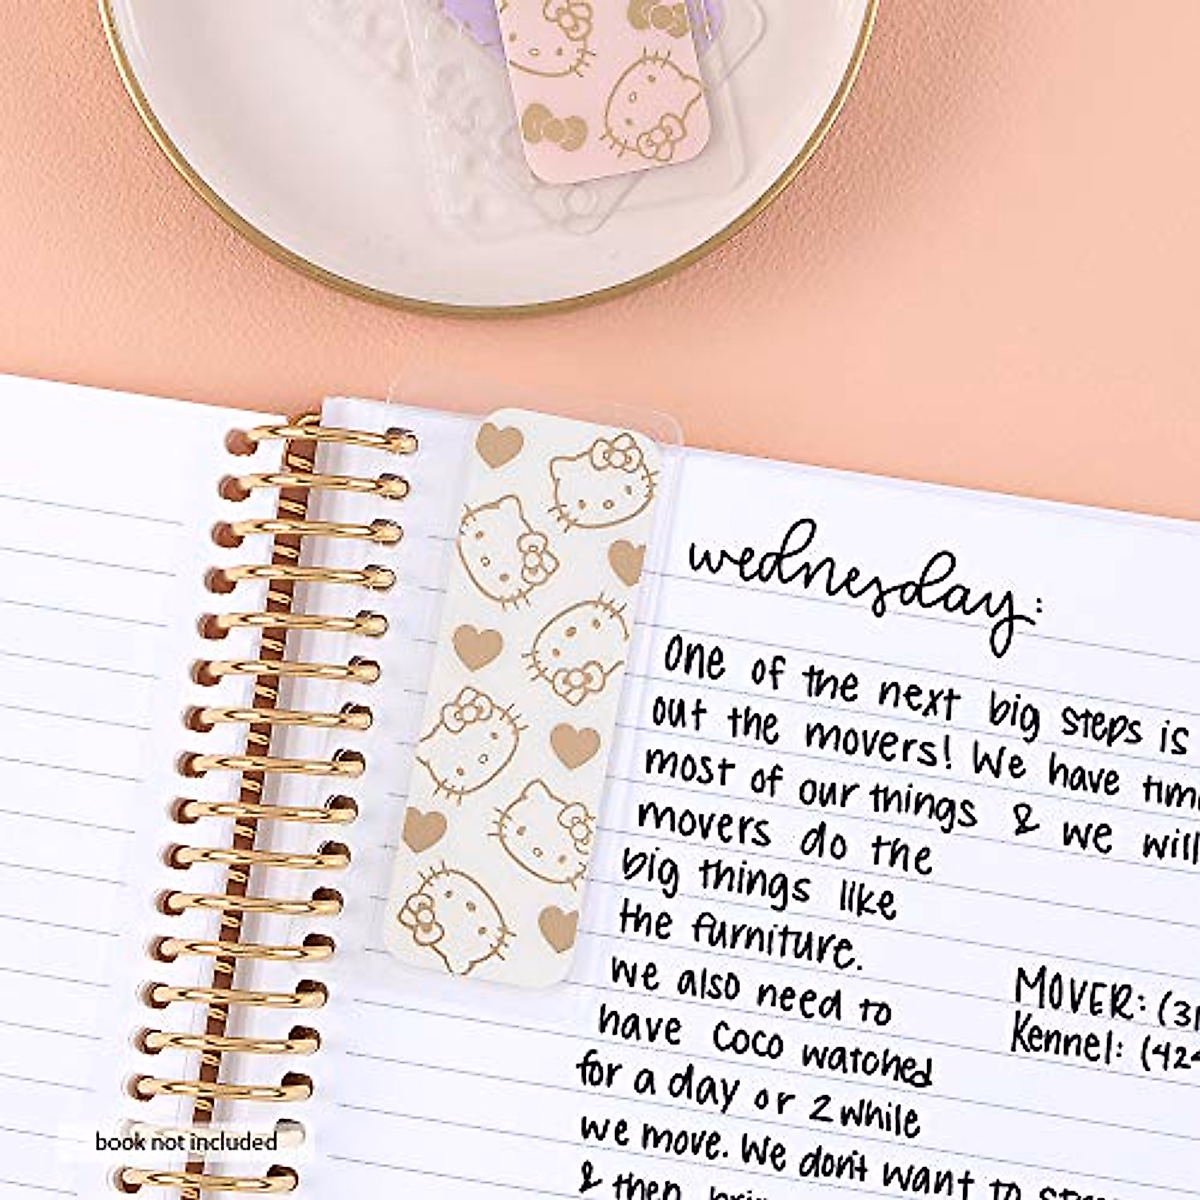 wednesday:
One of the next big steps is
out the movers! We have
most of our things & we will
movers do the
big things like
the furniture.
we also need to
have Coco watched
for a day or 2 while
we move. We don't want to
& then
MOVER: (31
Kennel: (424
book not included